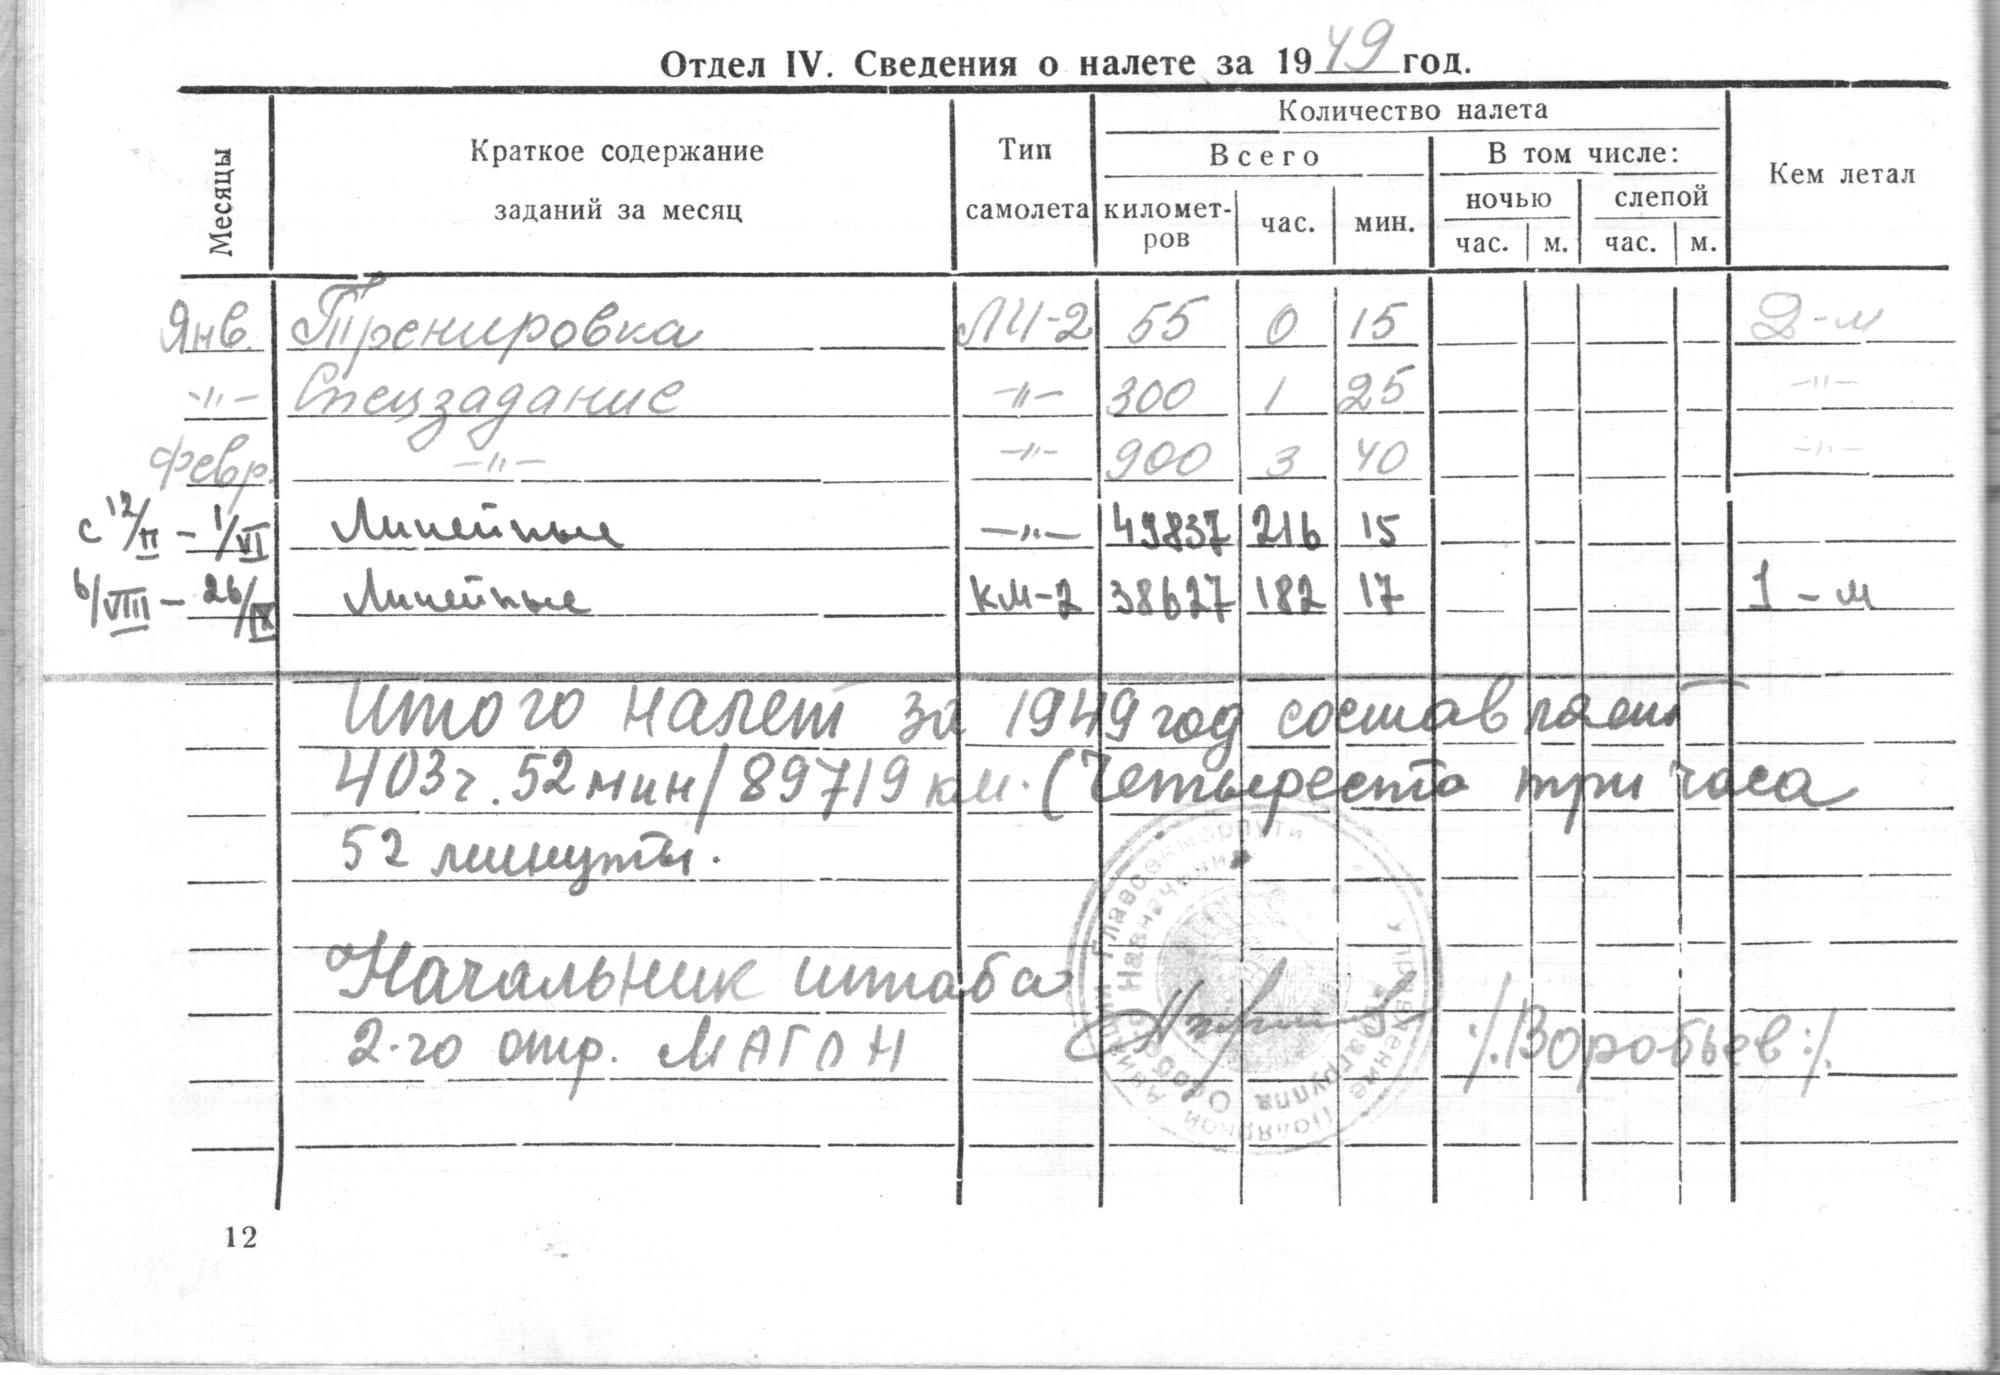 Отдел IV. Сведения о налете за 1949 год.
Месяцы
Краткое содержание заданий за месяц
Тип самолета
Количество налета
Всего
В том числе:
Кем летал
километров
час.
мин.
ночью
слепой
час. м. час. м.
Янв. Тренировка ЛИ-2 55 0 15 2-м
-"- Спецзадание -"- 300 1 25 -"-
Февр. -"- -"- 900 3 40 -"-
с 12/II - 1/VI Линейные -"- 49837 216 15
6/VIII - 26/IX Линейные КМ-2 38627 182 17 1-м
Итого налет за 1949 год составляет
403 ч. 52 мин/89719 км. (Четыреста три часа
52 минуты.
Начальник штаба
2-го отр. МАГОН :/Воробьев:/.
Управление Полярной Авиации Главсевморпути
Авиагруппа Особого Назначения
12